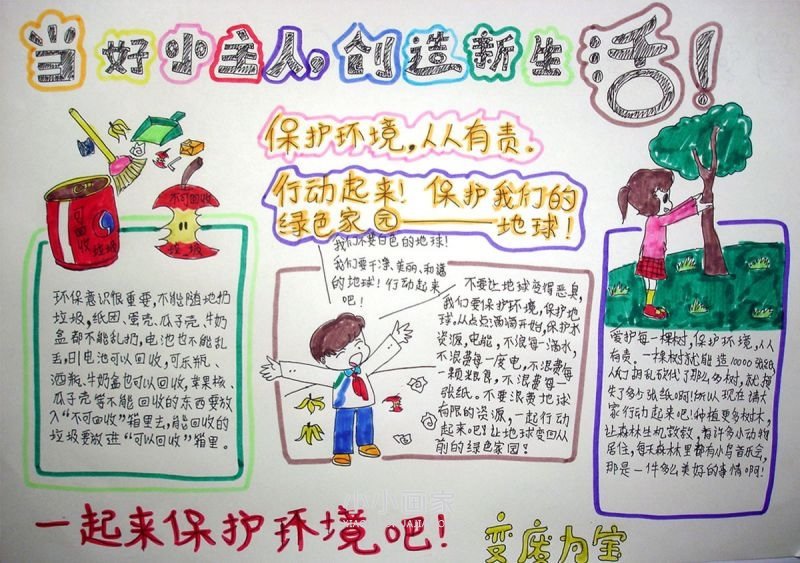 当好小主人，创造新生活！
保护环境，人人有责。
行动起来！保护我们的
绿色家园——地球！
不可回收
垃圾
可回收
垃圾
环保意识很重要，不能随地扔
垃圾，纸团、蛋壳、瓜子壳、牛奶
盒都不能乱扔，电池也不能乱
丢，旧电池可以回收，可乐瓶、
酒瓶、牛奶盒也可以回收，苹果核、
瓜子壳等不能回收的东西要放
入“不可回收”箱里去，能回收的
垃圾要放进“可以回收”箱里。
我们不要白色的地球！
我们要干净、美丽、和谐
的地球！行动起来
吧！
不要让地球变得恶臭，
我们要保护环境，保护地
球，从点点滴滴开始，保护水
资源，电能，不浪每一滴水，
不浪费每一度电，不浪费每
一颗粮食，不浪费每一
张纸。不要浪费地球
有限的资源，一起行动
起来吧？让地球变回从
前的绿色家园？
爱护每一棵树，保护环境，人人
有责。一棵树就能造10000张纸，
人们胡乱砍伐了那么多树，就损
失了多少张纸啊！所以，现在请大
家行动起来吧！种植更多树木，
让森林生机勃勃，有许多小动物
居住，每天森林里都有小鸟音乐会，
那是一件多么美好的事情啊！
一起来保护环境吧！
变废为宝
小小画家